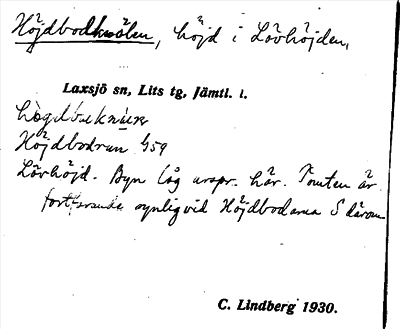 Höjdbodknölen, höjd i Lövhöjden,
Laxsjö sn, Lits tg, Jämtl. l.
Höjdbodrun 459
Lövhöjd. Byn låg urspr. här. Tomten är
fortfarande synlig vid Höjdbodarna S därom
C. Lindberg 1930.